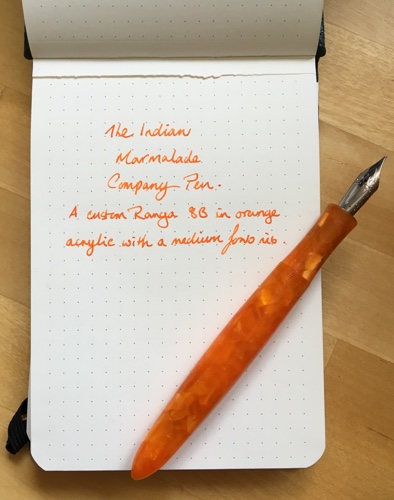 The Indian
Marmalade
Company Pen.
A custom Ranga 8B in orange
acrylic with a medium nib.